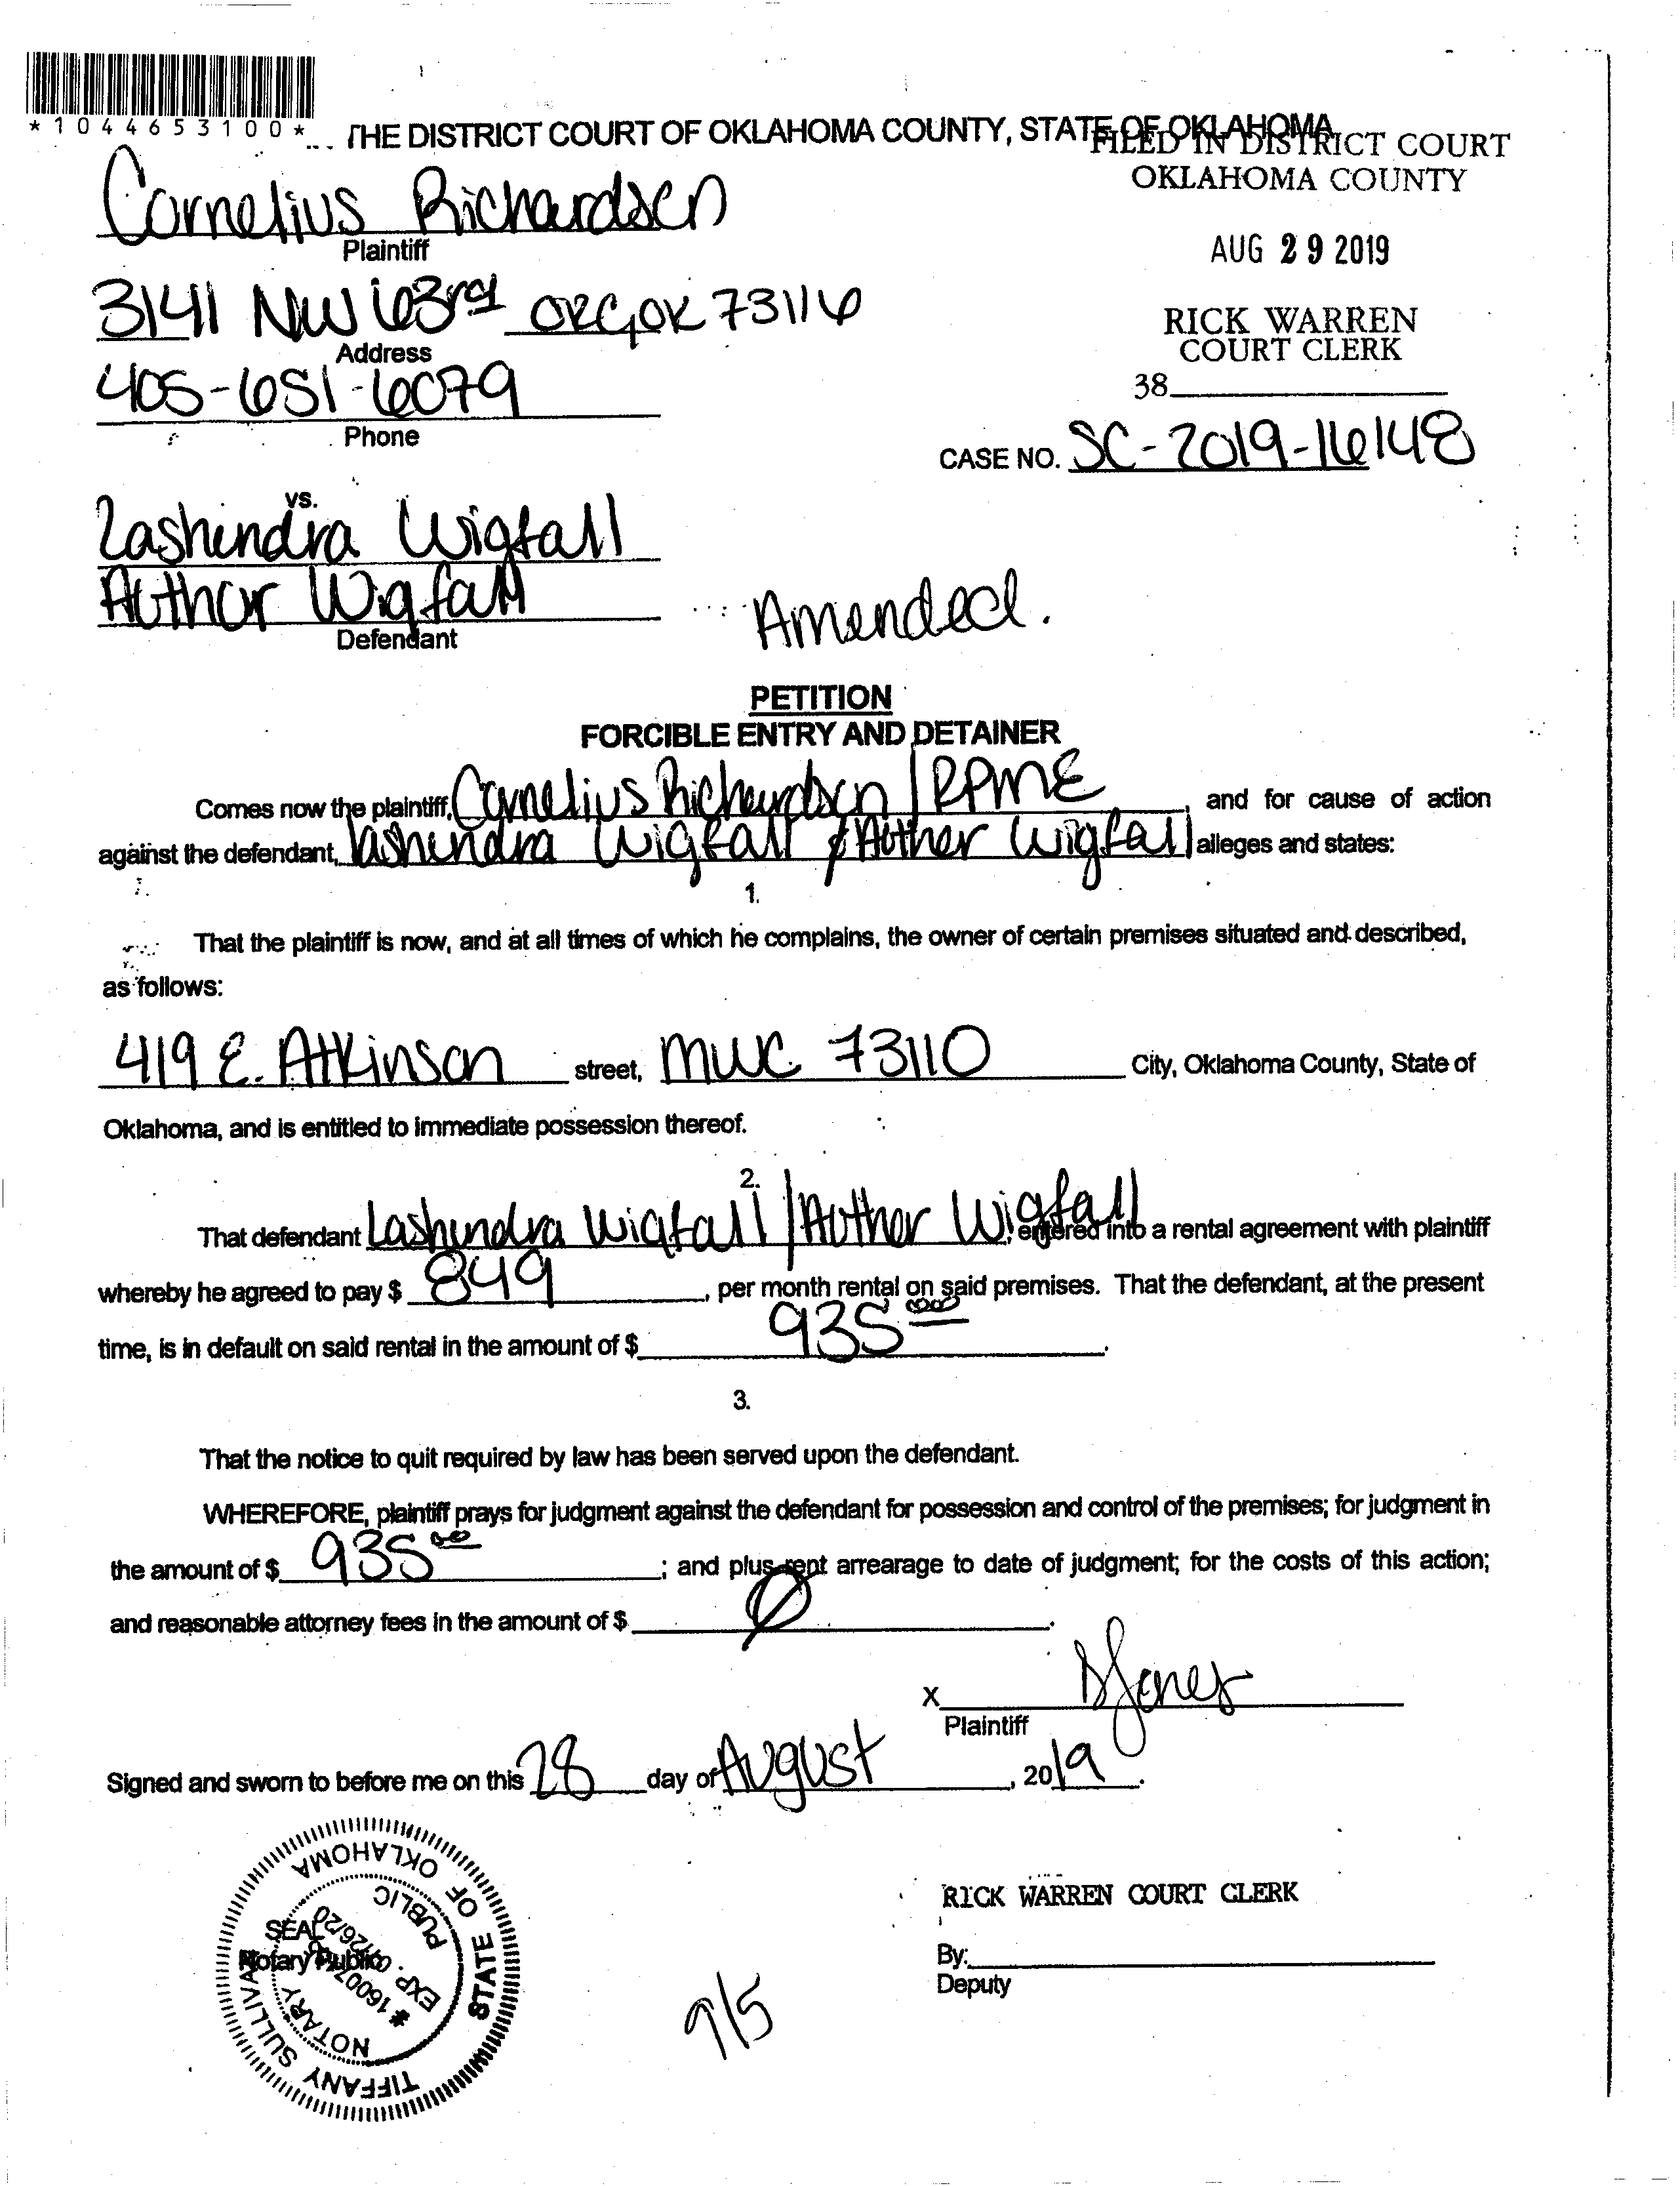 *1044653100*
THE DISTRICT COURT OF OKLAHOMA COUNTY, STATE OF OKLAHOMA
FILED IN DISTRICT COURT
OKLAHOMA COUNTY
Cornelius Richardson
Plaintiff
AUG 29 2019
3141 NW 63rd OKC, OK 73116
Address
RICK WARREN
COURT CLERK
405-651-6079
Phone
38
CASE NO. SC-2019-16148
vs.
Lashundra Wigfall
Author Wigfall
Defendant
Amended.
PETITION
FORCIBLE ENTRY AND DETAINER
Comes now the plaintiff, Cornelius Richardson / RPME, and for cause of action
against the defendant, Lashundra Wigfall & Author Wigfall alleges and states:
1.
That the plaintiff is now, and at all times of which he complains, the owner of certain premises situated and described,
as follows:
419 E. Atkinson street, MWC 73110 City, Oklahoma County, State of
Oklahoma, and is entitled to immediate possession thereof.
2.
That defendant Lashundra Wigfall / Author Wigfall, entered into a rental agreement with plaintiff
whereby he agreed to pay $ 849, per month rental on said premises. That the defendant, at the present
time, is in default on said rental in the amount of $ 935.00.
3.
That the notice to quit required by law has been served upon the defendant.
WHEREFORE, plaintiff prays for judgment against the defendant for possession and control of the premises; for judgment in
the amount of $ 935.00; and plus rent arrearage to date of judgment; for the costs of this action;
and reasonable attorney fees in the amount of $ Ø.
X
Plaintiff
Signed and sworn to before me on this 28 day of August, 2019.
TIFFANY SULLIVAN
STATE OF OKLAHOMA
NOTARY PUBLIC
EXP.
SEAL
Notary Public
RICK WARREN COURT CLERK
By:
Deputy
9/5